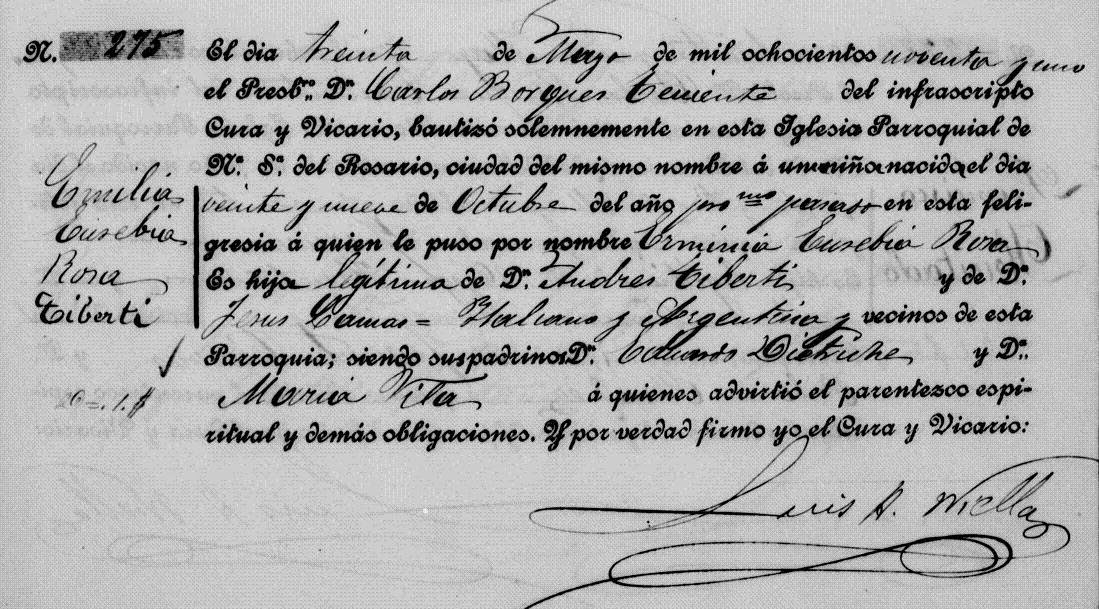 N. 275
El dia treinta de Mayo de mil ochocientos noventa y uno
el Presb.ro D.n Carlos Borques Teniente del infrascripto
Cura y Vicario, bautizó solemnemente en esta Iglesia Parroquial de
N.a S.a del Rosario, ciudad del mismo nombre á una niña nacida el dia
veinte y nueve de Octubre del año pro mo pasado en esta feli-
gresia á quien le puso por nombre Erminia Eusebia Rosa
Es hija legítima de D.n Andres Tiberti y de D.a
Jesus Lamas = Italiano y Argentina y vecinos de esta
Parroquia; siendo sus padrinos D.n Eduardo Dietriche y D.a
Maria Vita á quienes advirtió el parentezco espi-
ritual y demás obligaciones. Y por verdad firmo yo el Cura y Vicario:
Luis A. Niella
Emilia
Eusebia
Rosa
Tiberti